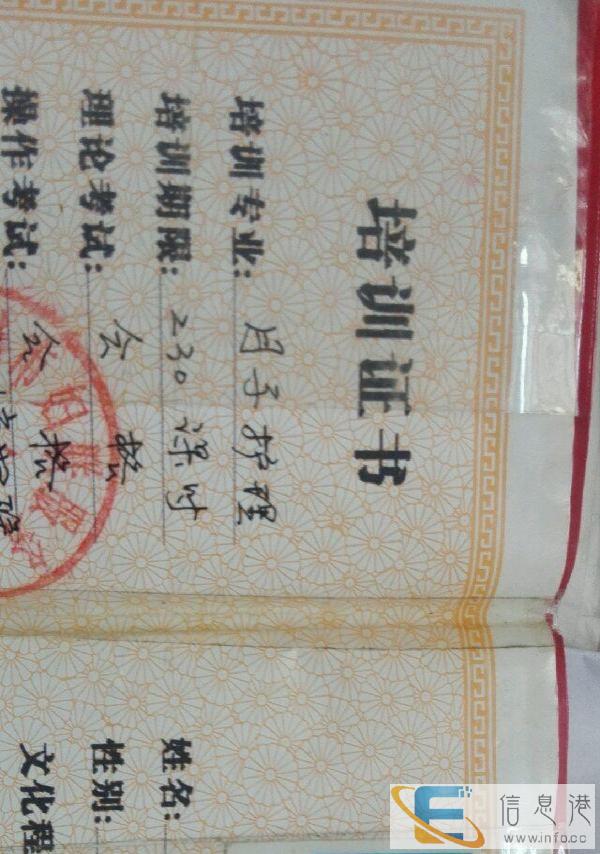 培训证书
培训专业：月子护理
培训期限：230课时
理论考试：合格
操作考试：合格
姓名：
性别：
文化程
信息港
www.info.cc